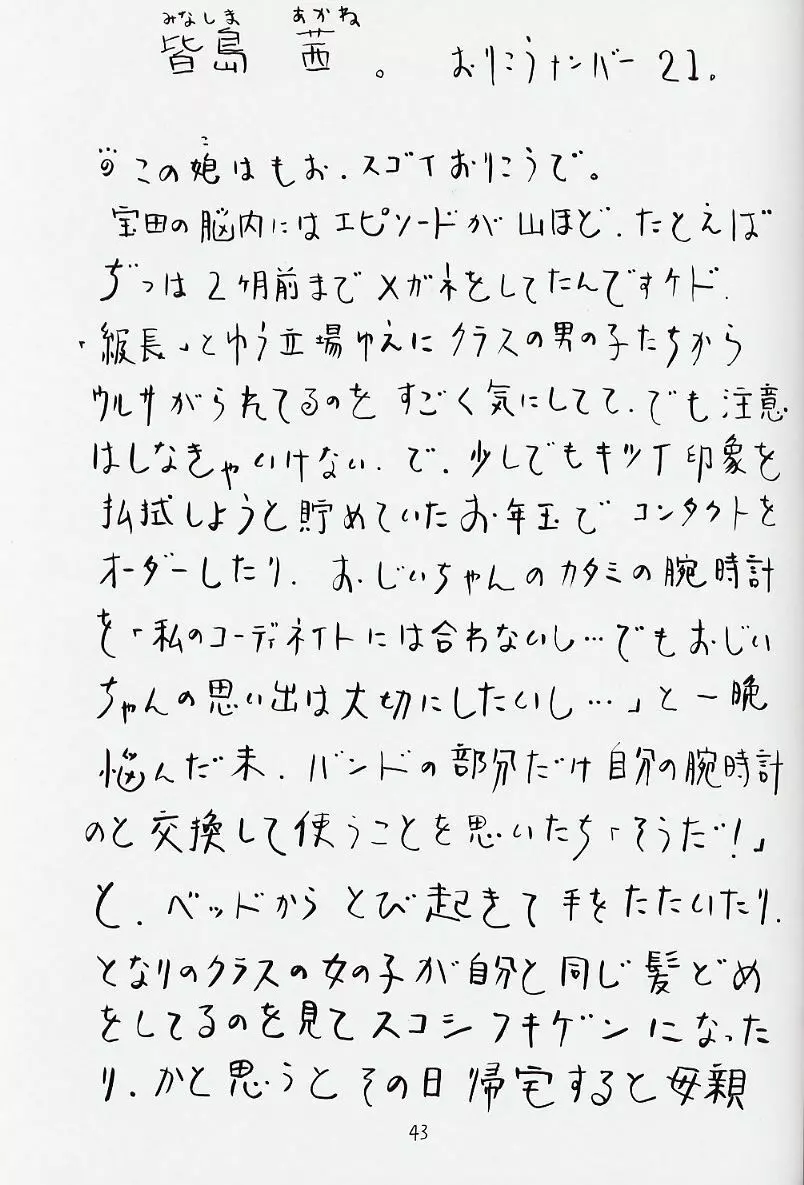 みなしま あかね
皆島 茜。 おりこうナンバー21。
こ
この娘はもお、スゴイおりこうで。
宝田の脳内にはエピソードが山ほど、たとえば
ぢつは2ヶ月前までメガネをしてたんですケド、
「級長」とゆう立場ゆえにクラスの男の子たちから
ウルサがられてるのをすごく気にしてて、でも注意
はしなきゃいけない、で、少しでもキツイ印象を
払拭しようと貯めていたお年玉でコンタクトを
オーダーしたり、おじいちゃんのカタミの腕時計
を「私のコーディネイトには合わないし…でもおじい
ちゃんの思い出は大切にしたいし…」と一晩
悩んだ末、バンドの部分だけ自分の腕時計
のと交換して使うことを思いたち「そうだ!」
と、ベッドからとび起きて手をたたいたり、
となりのクラスの女の子が自分と同じ髪どめ
をしてるのを見てスコシフキゲンになった
り、かと思うとその日帰宅すると母親
43